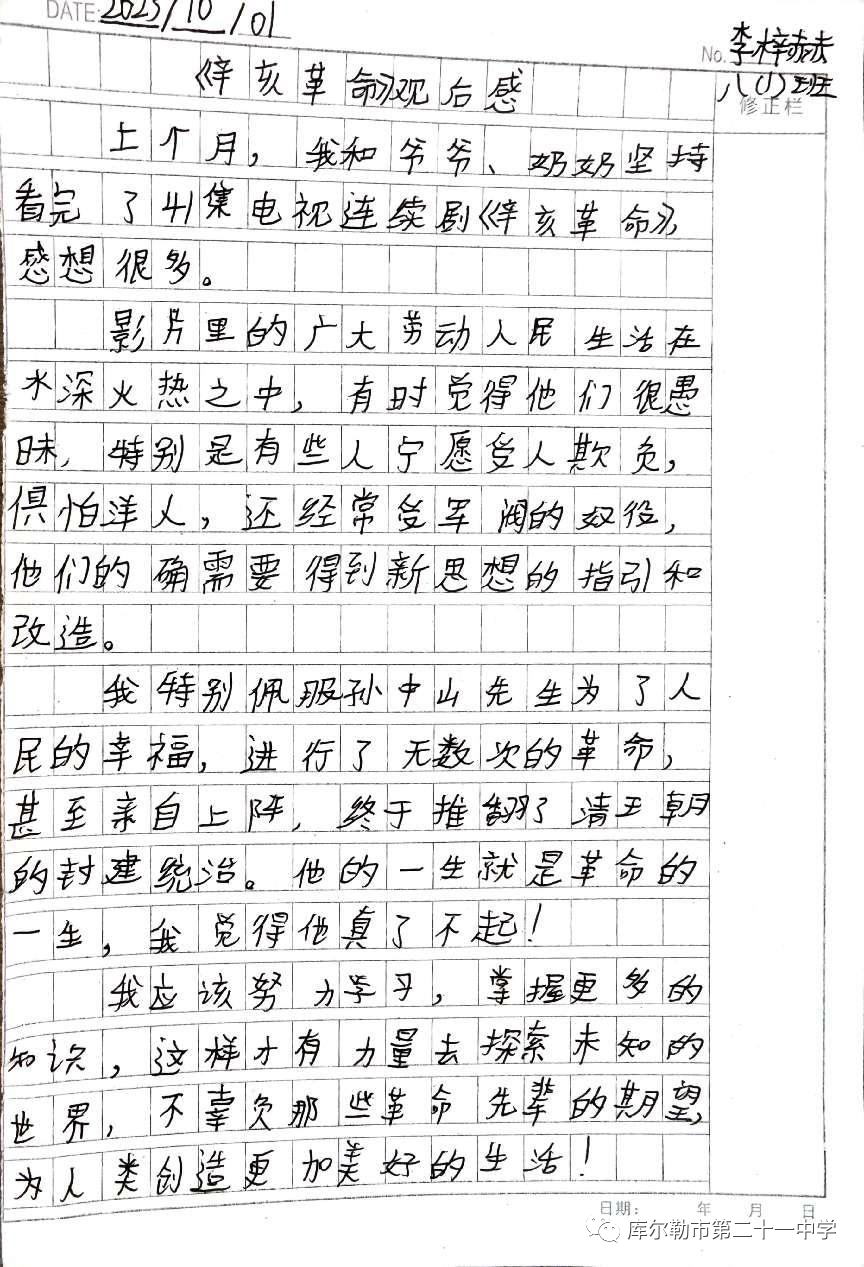 DATE: 2023/10/01
No. 李梓赫
八(1)班
修正栏
《辛亥革命》观后感
上个月，我和爷爷、奶奶坚持
看完了41集电视连续剧《辛亥革命》，
感想很多。
影片里的广大劳动人民生活在
水深火热之中，有时觉得他们很愚
昧，特别是有些人宁愿受人欺负，
惧怕洋人，还经常受军阀的奴役，
他们的确需要得到新思想的指引和
改造。
我特别佩服孙中山先生为了人
民的幸福，进行了无数次的革命，
甚至亲自上阵，终于推翻了清王朝
的封建统治。他的一生就是革命的
一生，我觉得他真了不起！
我应该努力学习，掌握更多的
知识，这样才有力量去探索未知的
世界，不辜负那些革命先辈的期望，
为人类创造更加美好的生活！
日期： 年 月 日
库尔勒市第二十一中学